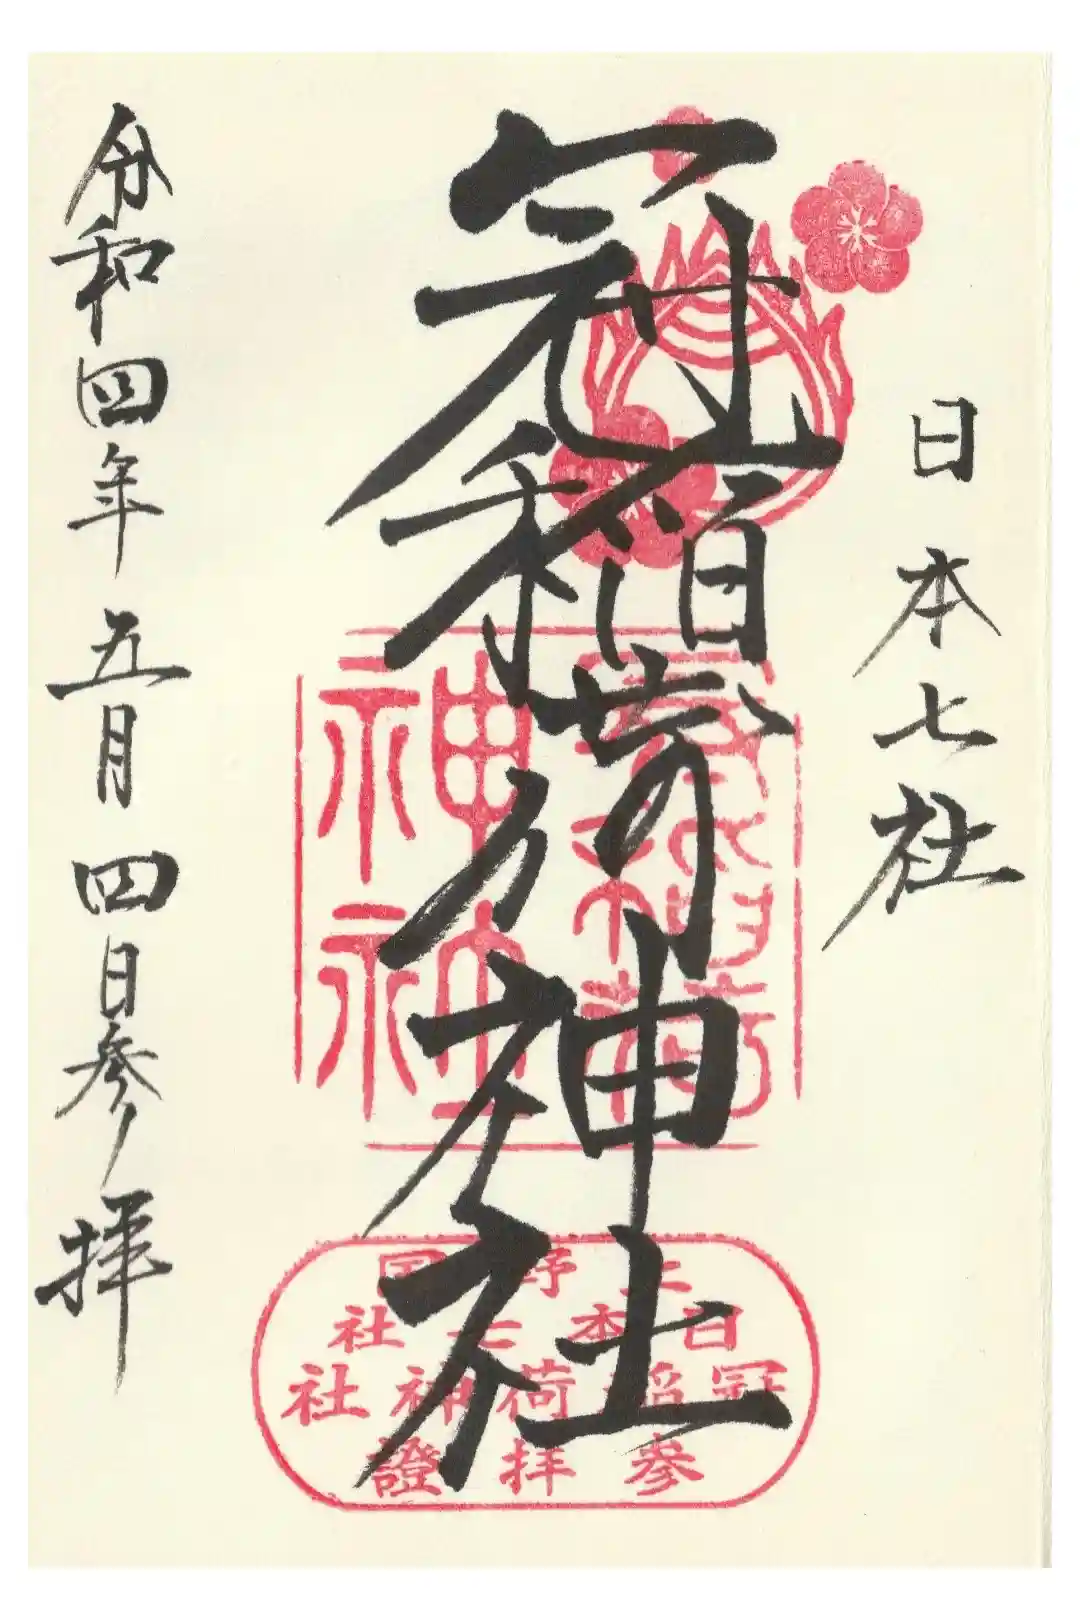 日本七社
冠稲荷神社
令和四年五月四日参拝
神社
上野国
日本七社
冠稲荷神社
参拝證